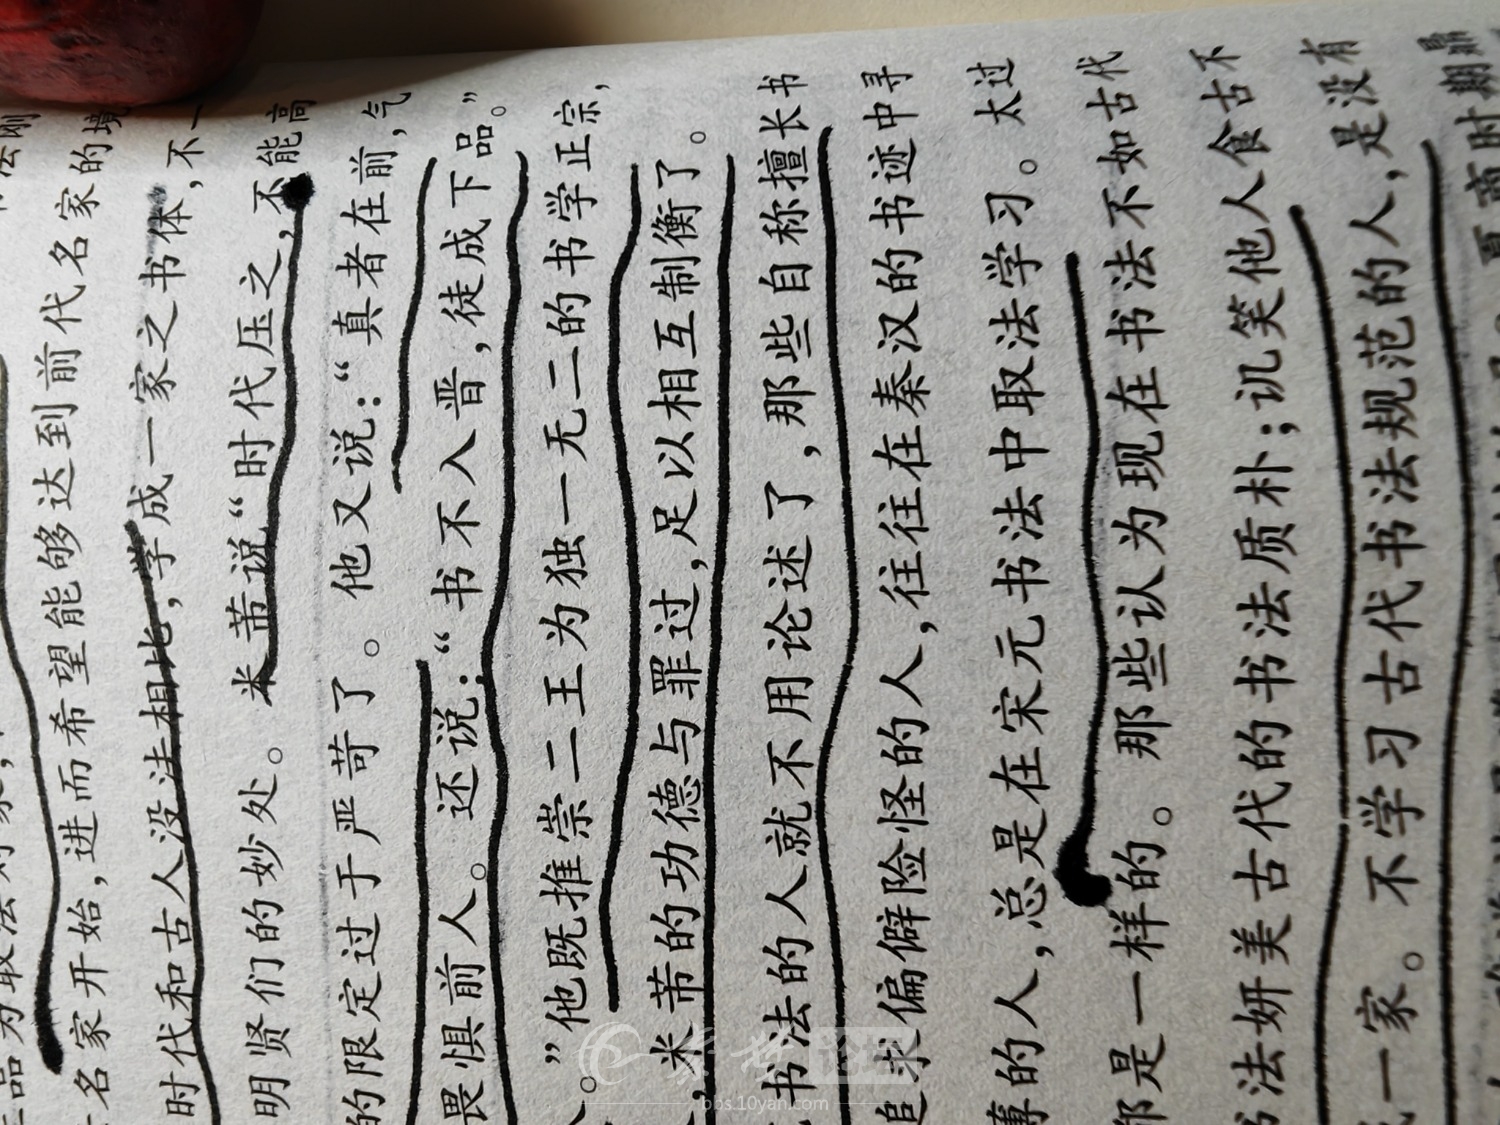 品为取法
名家开始，进而希望能够达到前代名家的境
时代和古人没法相比，学成一家之书体，不一
明贤们的妙处。米芾说“时代压之，不能高
的限定过于严苛了。他又说：“真者在前，气
畏惧前人。还说：“书不入晋，徒成下品。”
。”他既推崇二王为独一无二的书学正宗，
，米芾的功德与罪过，足以相互制衡了。
书法的人就不用论述了，那些自称擅长书
追求偏僻险怪的人，往往在秦汉的书迹中寻
薄的人，总是在宋元书法中取法学习。太过
都是一样的。那些认为现在书法不如古代
书法妍美古代的书法质朴；讥笑他人食古不
一家。不学习古代书法规范的人，是没有
夏商时期鼎
论坛
bbs.10yan.com